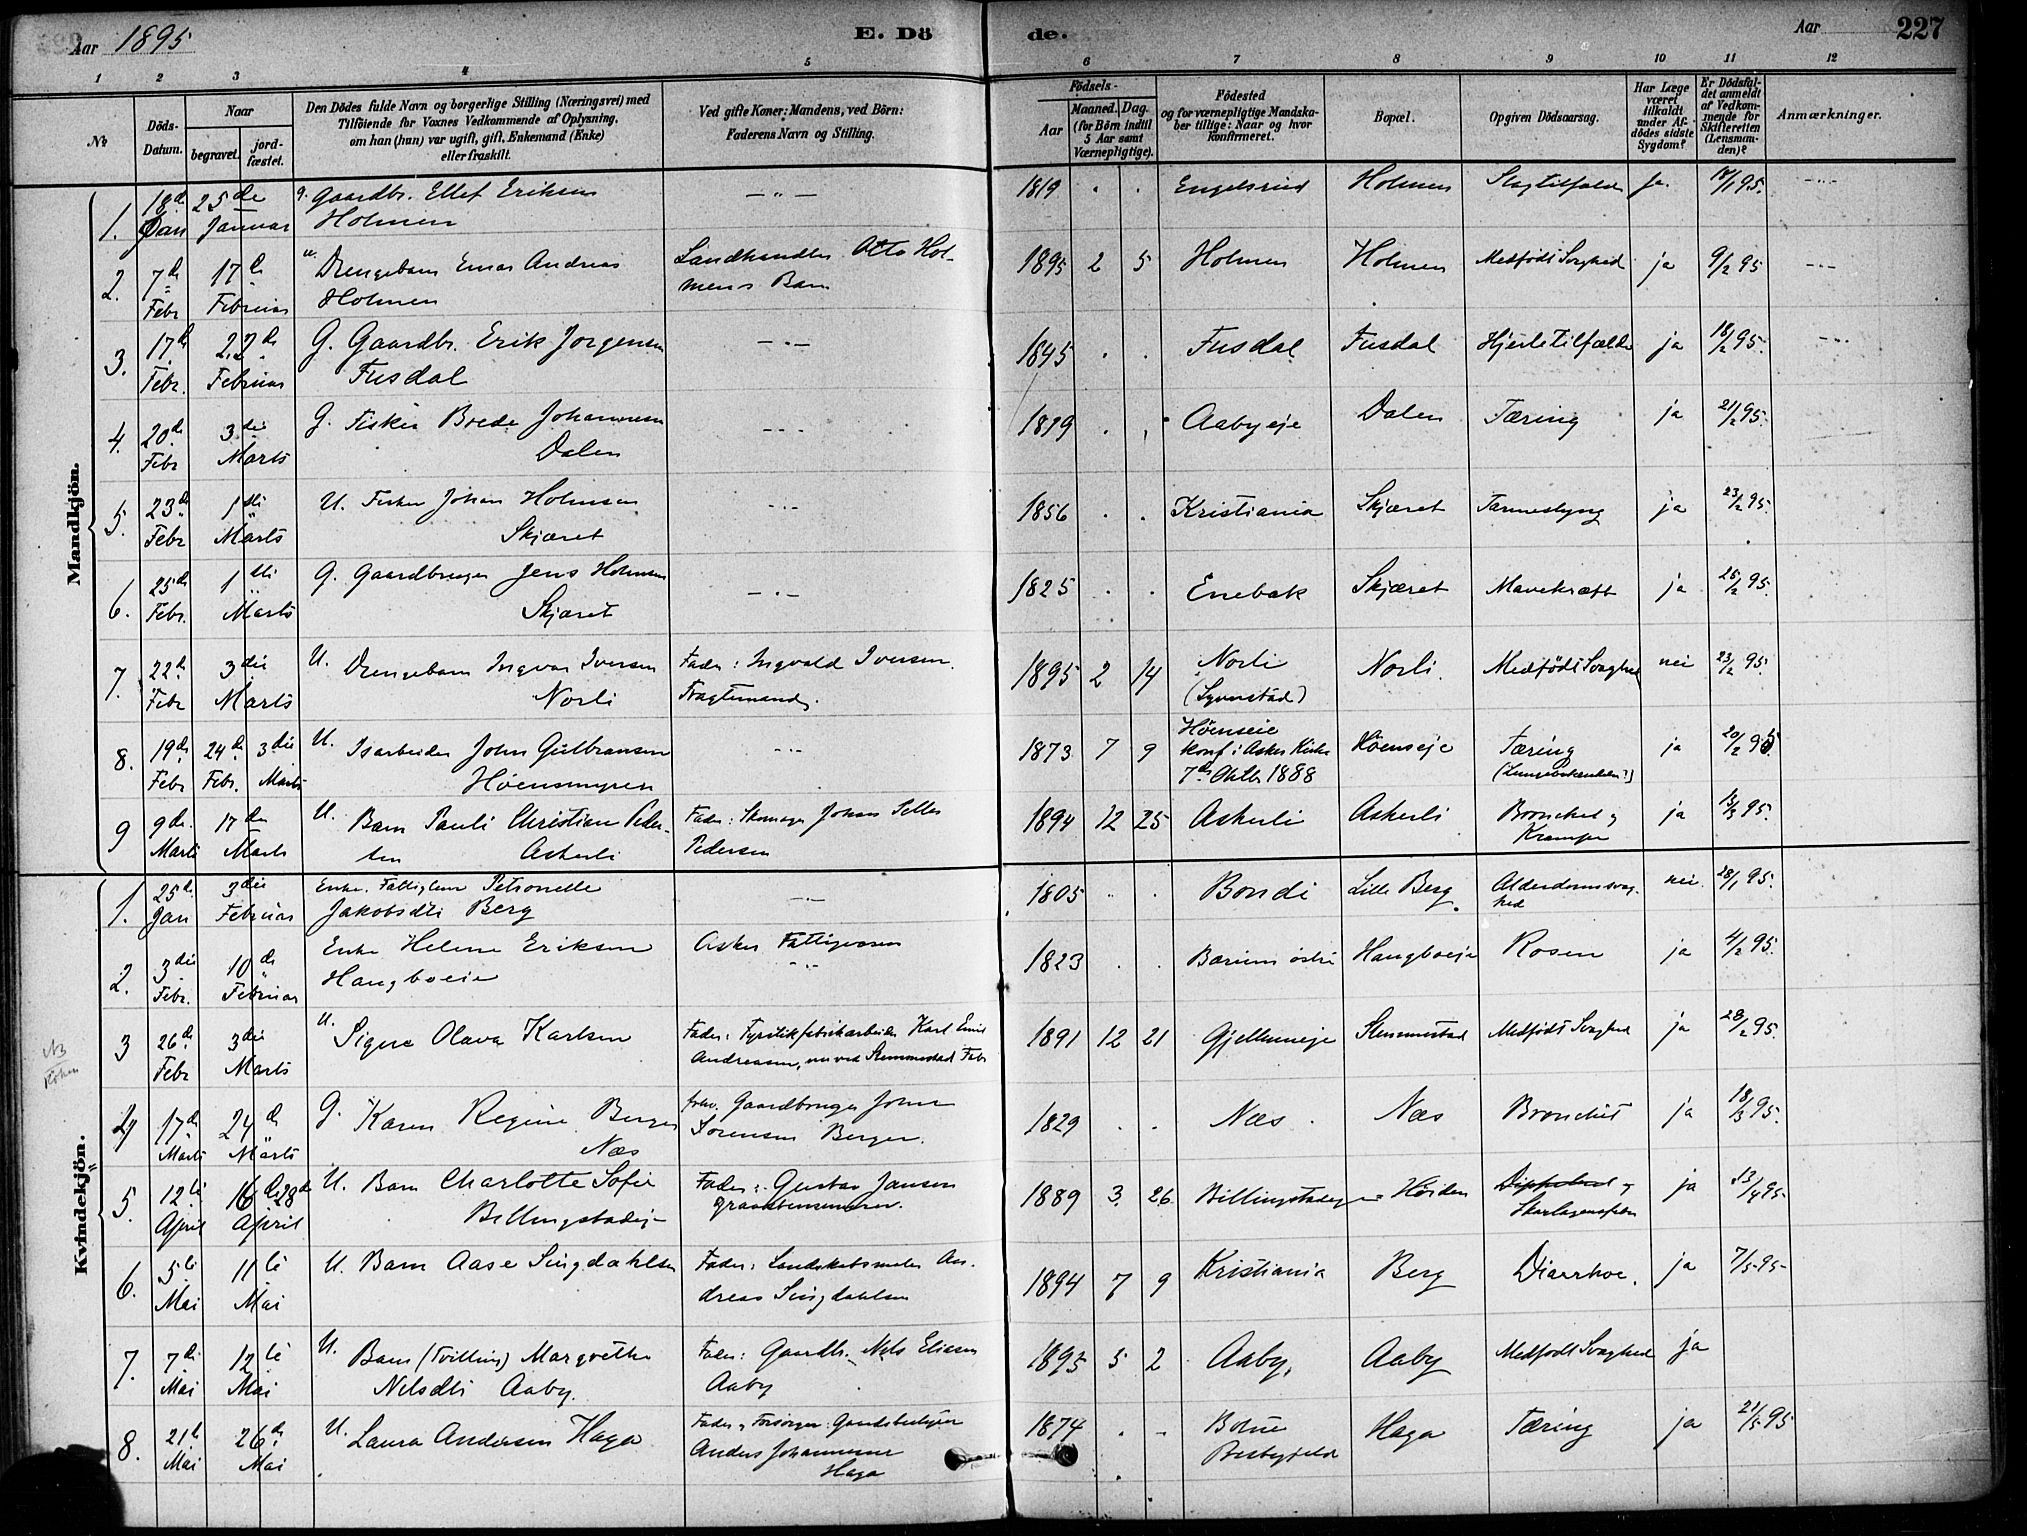 Aar 1895 E. Dö de. Aar 227
1 2 3 4 5 6 7 8 9 10 11 12
№
Döds-Datum.
Naar
begravet.
jord-fæstet.
Den Dödes fulde Navn og borgerlige Stilling (Næringsvei) med
Tilföiende for Voxnes Vedkommende af Oplysning,
om han (hun) var ugift, gift, Enkemand (Enke)
eller fraskilt.
Ved gifte Koner: Mandens, ved Börn:
Faderens Navn og Stilling.
Födsels-
Aar
Maaned. Dag.
(for Börn indtil
5 Aar samt
Værnepligtige).
Födested
og for værnepligtige Mandska-
ber tillige: Naar og hvor
konfirmeret.
Bopæl.
Opgiven Dödsaarsag.
Har Læge
været
tilkaldt
under Af-
dödes sidste
Sygdom?
Er Dödsfal-
det anmeldt
af Vedkom-
mende for
Skifteretten
(Lensman-
den)?
Anmærkninger.
Mandkjön.
1. 18de 25de g. Gaardbr. Ellef Eriksen 1819 Engelsrud Holmen Slagtilfælde Ja 18/1 95.
Jan Januar Holmen
2. 7de 17de u. Drengebarn Einar Andreas Landhandler Otto Hol- 1895 2 5 Holmen Holmen Medfödt Svaghed ja 9/2 95
Febr Februar Holmen mens Barn
3. 17de 22de G. Gaardbr. Erik Jörgensen 1845 Fusdal Fusdal Hjertetilfælde ja 18/2 95.
Febr. Februar Fusdal
4. 20de 3die G. Fisker Brede Johannesen 1819 Aabyeje Dalen Tæring ja 21/2 95.
Febr Marts Dalen
5. 23de 1ste U. Fisker Johan Holmsen 1856 Kristiania Skjæret Tarmeslyng ja 23/2 95.
Febr Marts Skjæret
6. 25de 1ste G. Gaardbruger Jens Holmsen 1825 Enebak Skjæret Mavekræft ja 25/2 95.
Febr. Marts Skjæret
7. 22de 3die U. Drengebarn Ingvar Iversen Fader: Ingvald Iversen. 1895 2 14 Norli Norli. Medfödt Svaghed nei 23/2 95.
Febr Marts Norli Fragtemand. (Syverstad)
8. 19de 24de 3die U. Isarbeider John Gulbransen 1873 7 9 Höenseie Höenseje Tæring ja 20/2 95
Febr Febr. Marts Höensmyren konf. i Asker Kirke
7de Oktbr 1888
9 9de 17de U. Barn Pauli Christian Peder- Fader: Skomager Johan Petter 1894 12 25 Askerli Askerli Bronchit og ja 13/3 95.
Marts Marts sen Askerli Pedersen Kramper
Kvindekjön.
1. 25de 3die Enke. Fattiglem Petronelle 1805 Bondi Lille Berg Alderdomssvag- nei 28/1 95.
Jan Februar Jakobsdtr Berg hed
2. 3die 10de Enke Helene Eriksen Asker Fattigvæsen 1823 Bærum östre Haugboeje Rosen ja 4/2 95.
Febr. Februar Haugboeie
3 26de 3die U. Signe Olava Karlsen Fader: Fyrstikfabrikarbeider Karl Emil 1891 12 21 Gjellumeje Slemmestad Medfödt Svaghed ja 28/2 95.
Febr Marts Andreassen, nu ved Slemmestad Fabr
NB
Röken
4 17de 24de G. Karen Regine Berger Gaardbruger John 1829 Næs Næs Bronchit ja 18/3 95.
Marts Marts Næs Sörensen Berger.
5. 12te 16de 28de U. Barn Charlotte Sofie Fader: Gustav Jansen 1889 3 26 Billingstadeje Höiden og ja 13/4 95
April April Billingstadeje Graastensminer. Skarlagensfeber
6. 5te 11te U. Barn Aase Singdahlsen Fader: Landskabsmaler An- 1894 7 9 Kristiania Berg Diarrhoe. ja 7/5 95
Mai Mai dreas Singdahlsen
7. 7de 12te U. Barn (Tvilling) Margrethe Fader: Gaardbr. Nils Eliesen 1895 5 2 Aaby, Aaby Medfödt Svaghed ja
Mai Mai Nilsdtr Aaby. Aaby
8. 21de 26de U. Laura Andersen Haga Fader og Forsörger: Gaardbestyrer 1874 Haga Tæring ja 21/5 95
Mai Mai Anders Johannesen
Haga